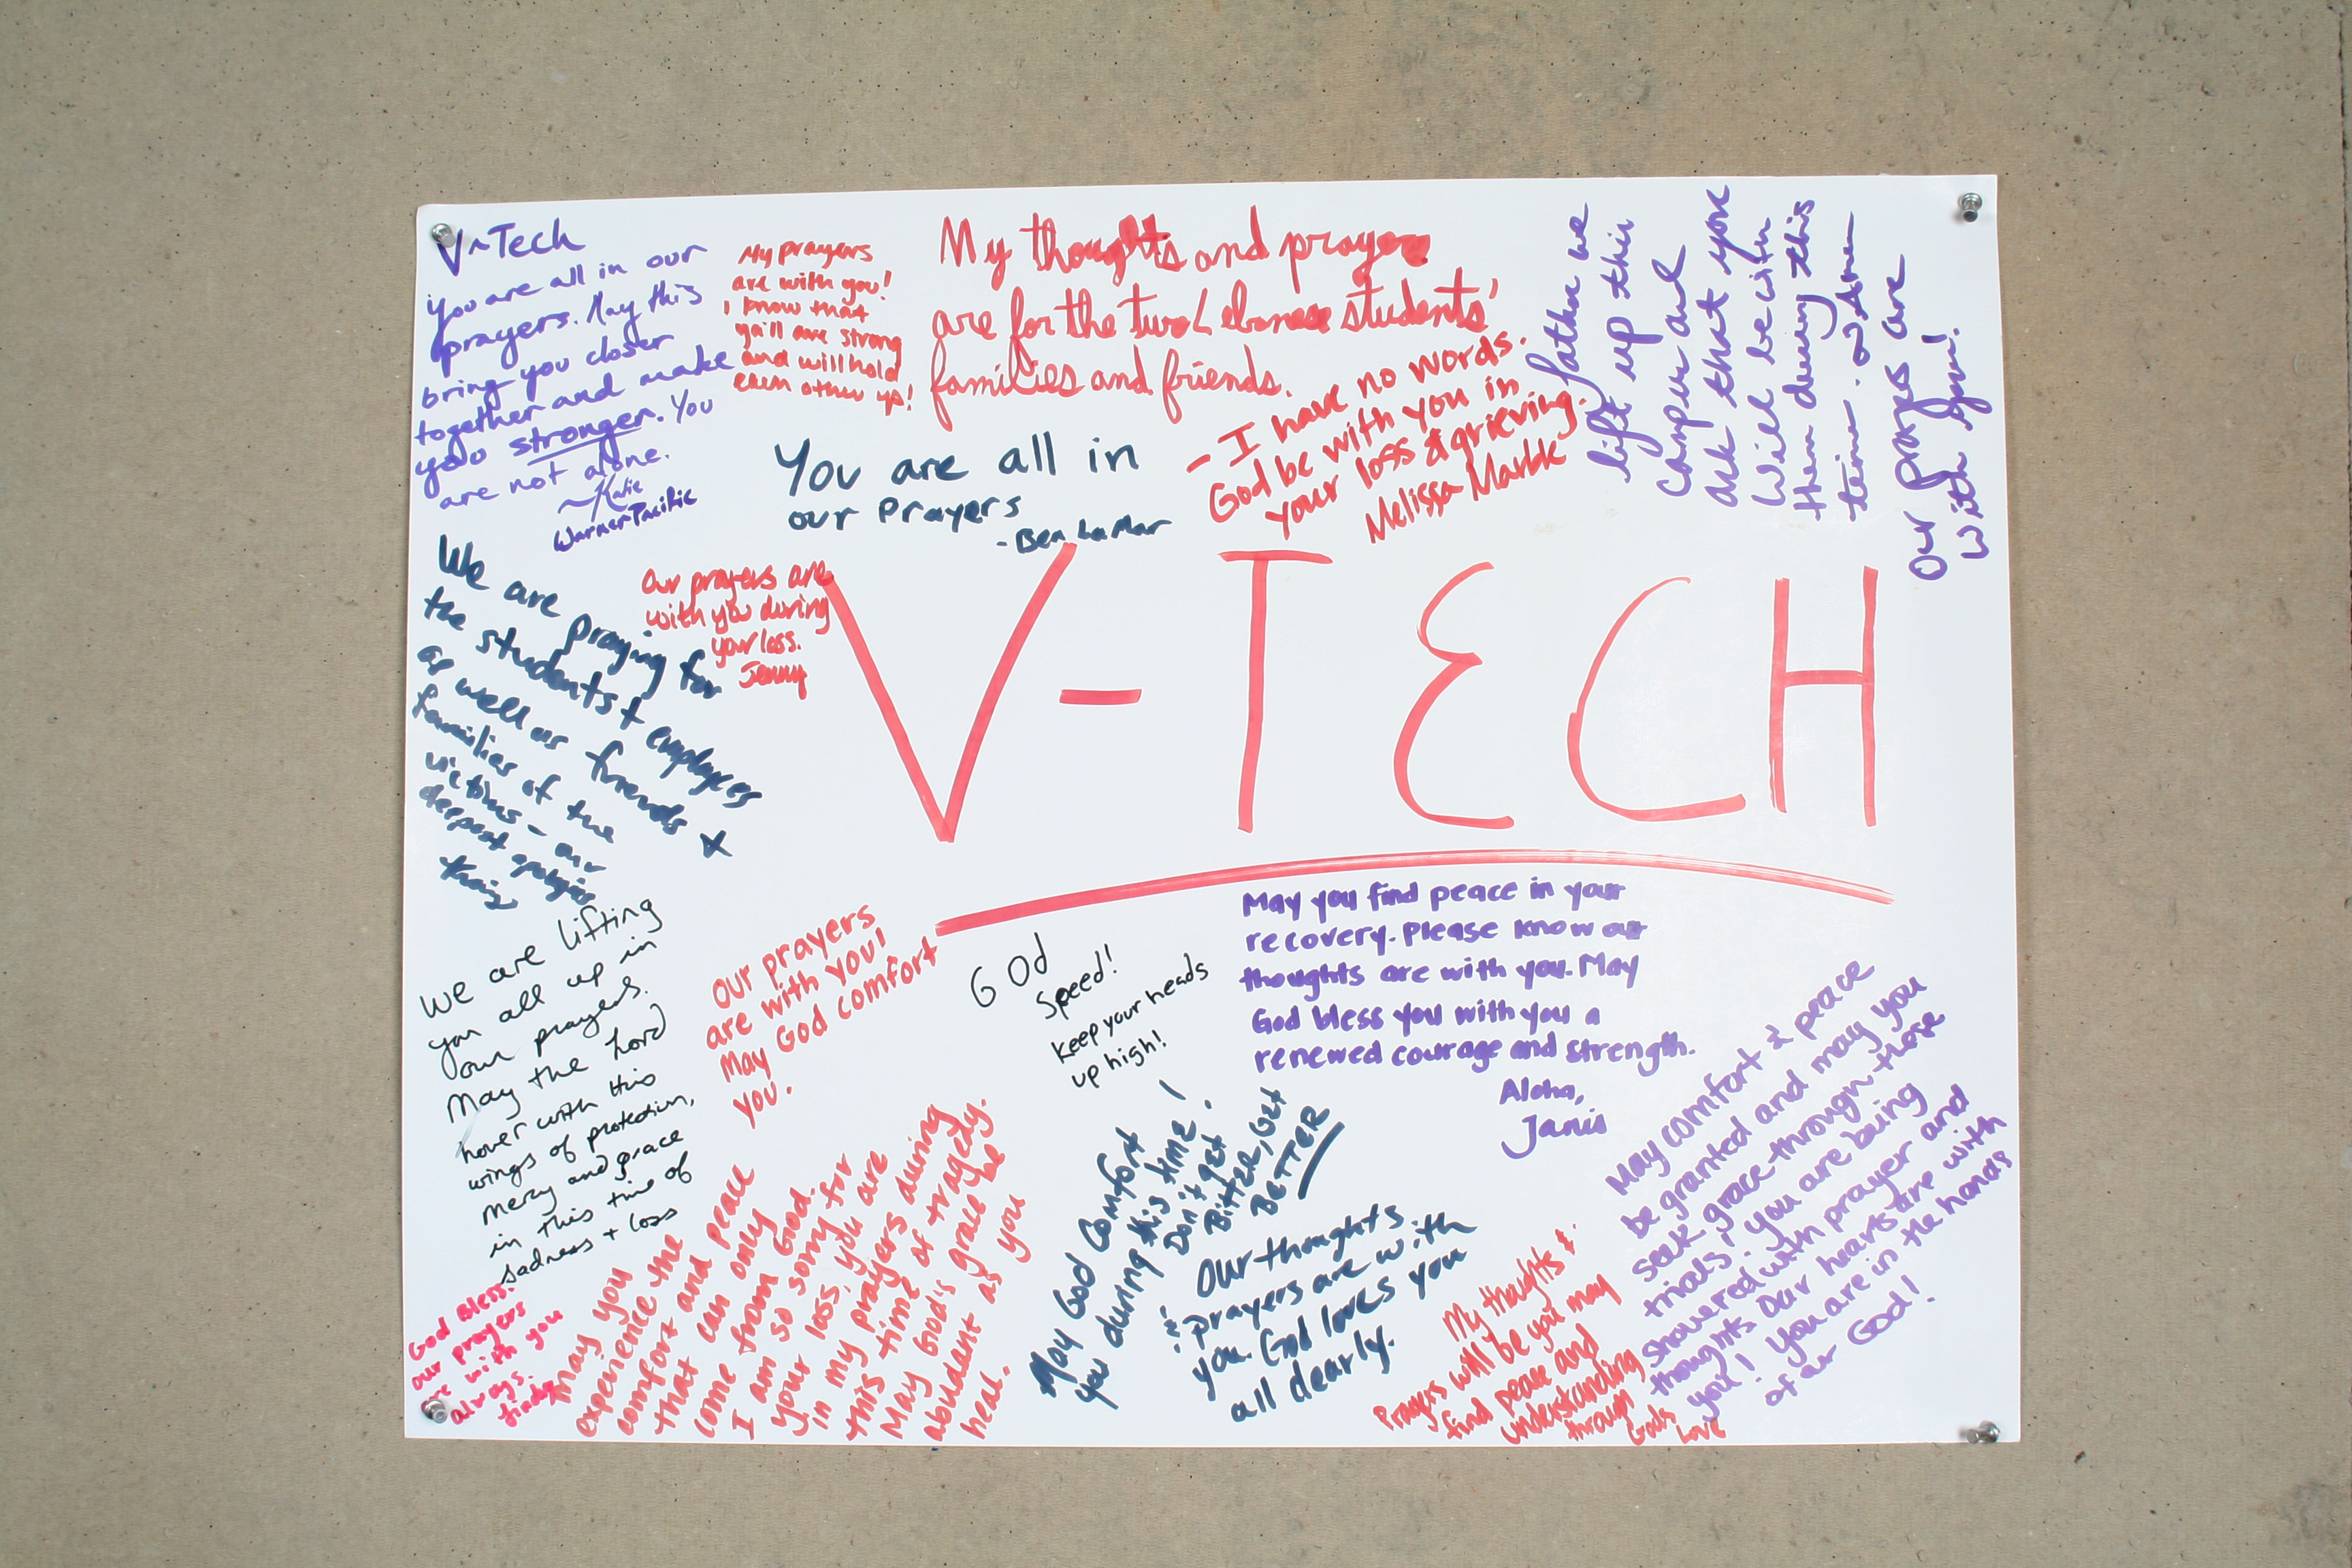 V-Tech
You are all in our
prayers. May this
bring you closer
together and make
you stronger. You
are not alone.
~Katie
Warner Pacific
My prayers
are with you!
I know that
ya'll are strong
and will hold
each other up!
My thoughts and prayers
are for the two Lebanese students'
families and friends.
- I have no words.
God be with you in
your loss & grieving.
Melissa Marble
Father we
lift up this
campus and
ask that you
will be with
them during this
time. ~ Amen
Our prayers are
with you!
You are all in
our prayers
- Ben LaMar
We are praying for
the students + employees
as well as friends +
families of the
victims - our
deepest apologies
Our prayers are
with you during
your loss.
Jenny
V-TECH
we are lifting
you all up in
our prayers.
May the Lord
hover with His
wings of protection,
mercy and grace
in this time of
sadness + loss
Our prayers
are with you!
May God comfort
you.
God
Speed!
keep your heads
up high!
May you find peace in your
recovery. Please know our
thoughts are with you. May
God bless you with you a
renewed courage and strength.
Aloha,
Janis
May comfort & peace
be granted and may you
seek grace through these
trials. You are being
showered with prayer and
thoughts. Our hearts are with
you! You are in the hands
of our God!
God Bless.
our prayers
are with you
always.
may you
experience the
comfort and peace
that can only
come from God.
I am so sorry for
your loss, you are
in my prayers during
this time of tragedy.
May God's grace be
abundant as you
heal.
May God Comfort
you during this time!
Don't get
Bitter, Get
BETTER
Our thoughts
& prayers are with
you. God loves you
all dearly.
My thoughts &
Prayers will be you may
find peace and
understanding
through
Gods
Love